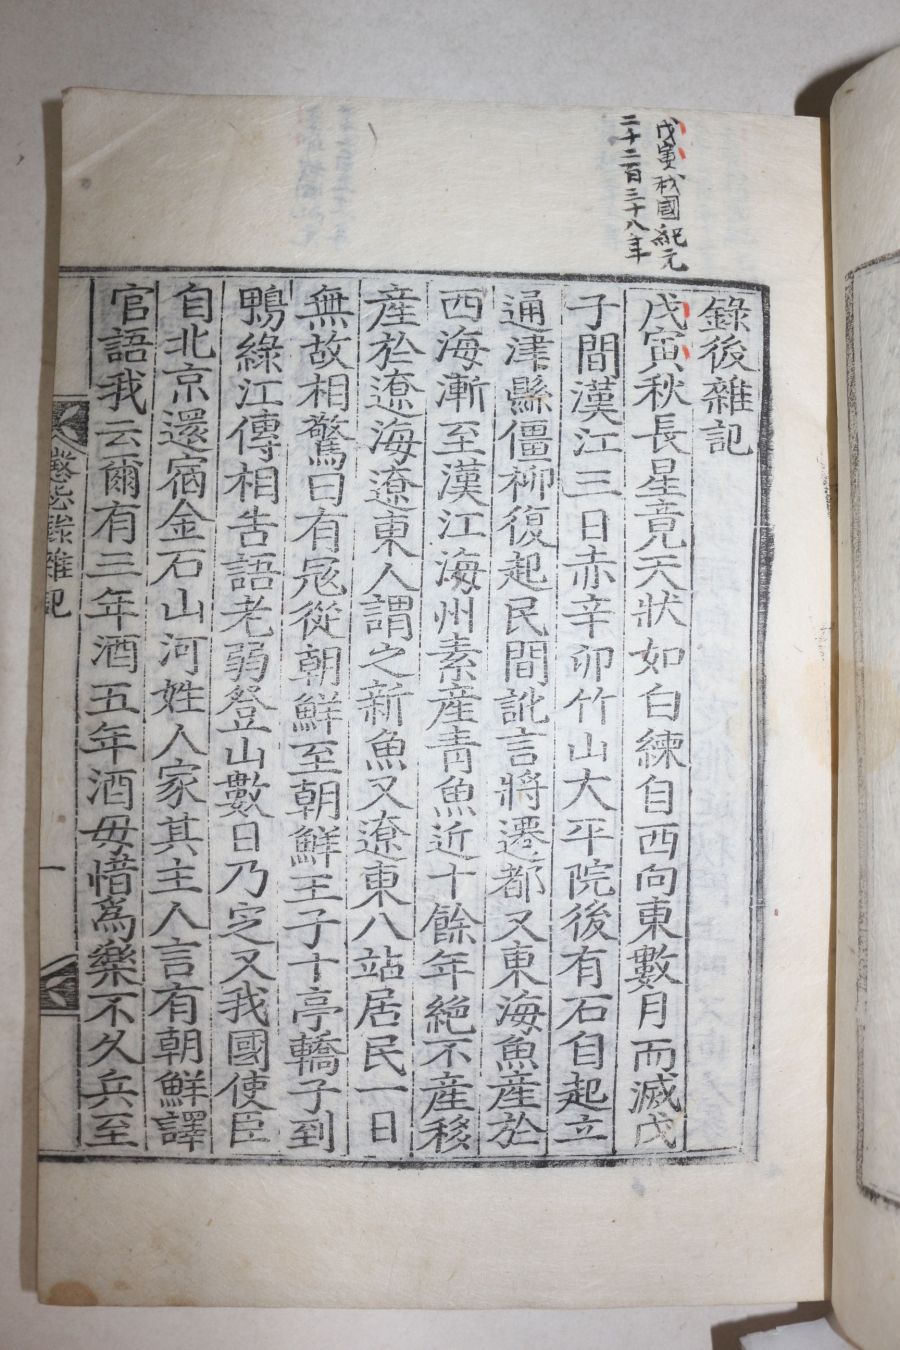 戊寅我國紀元
二千二百三十八年
錄後雜記
戊寅秋長星竟天狀如白練自西向東數月而滅戊
子間漢江三日赤辛卯竹山大平院後有石自起立
通津縣僵柳復起民間訛言將遷都又東海魚產於
西海漸至漢江海州素產青魚近十餘年絕不產移
產於遼海遼東人謂之新魚又遼東八站居民一日
無故相驚曰有冦從朝鮮至朝鮮王子十亭轎子到
鴨綠江傳相告語老弱登山數日乃定又我國使臣
自北京還宿金石山河姓人家其主人言有朝鮮譯
官語我云爾有三年酒五年酒毋惜爲樂不久兵至
懲毖錄雜記
一